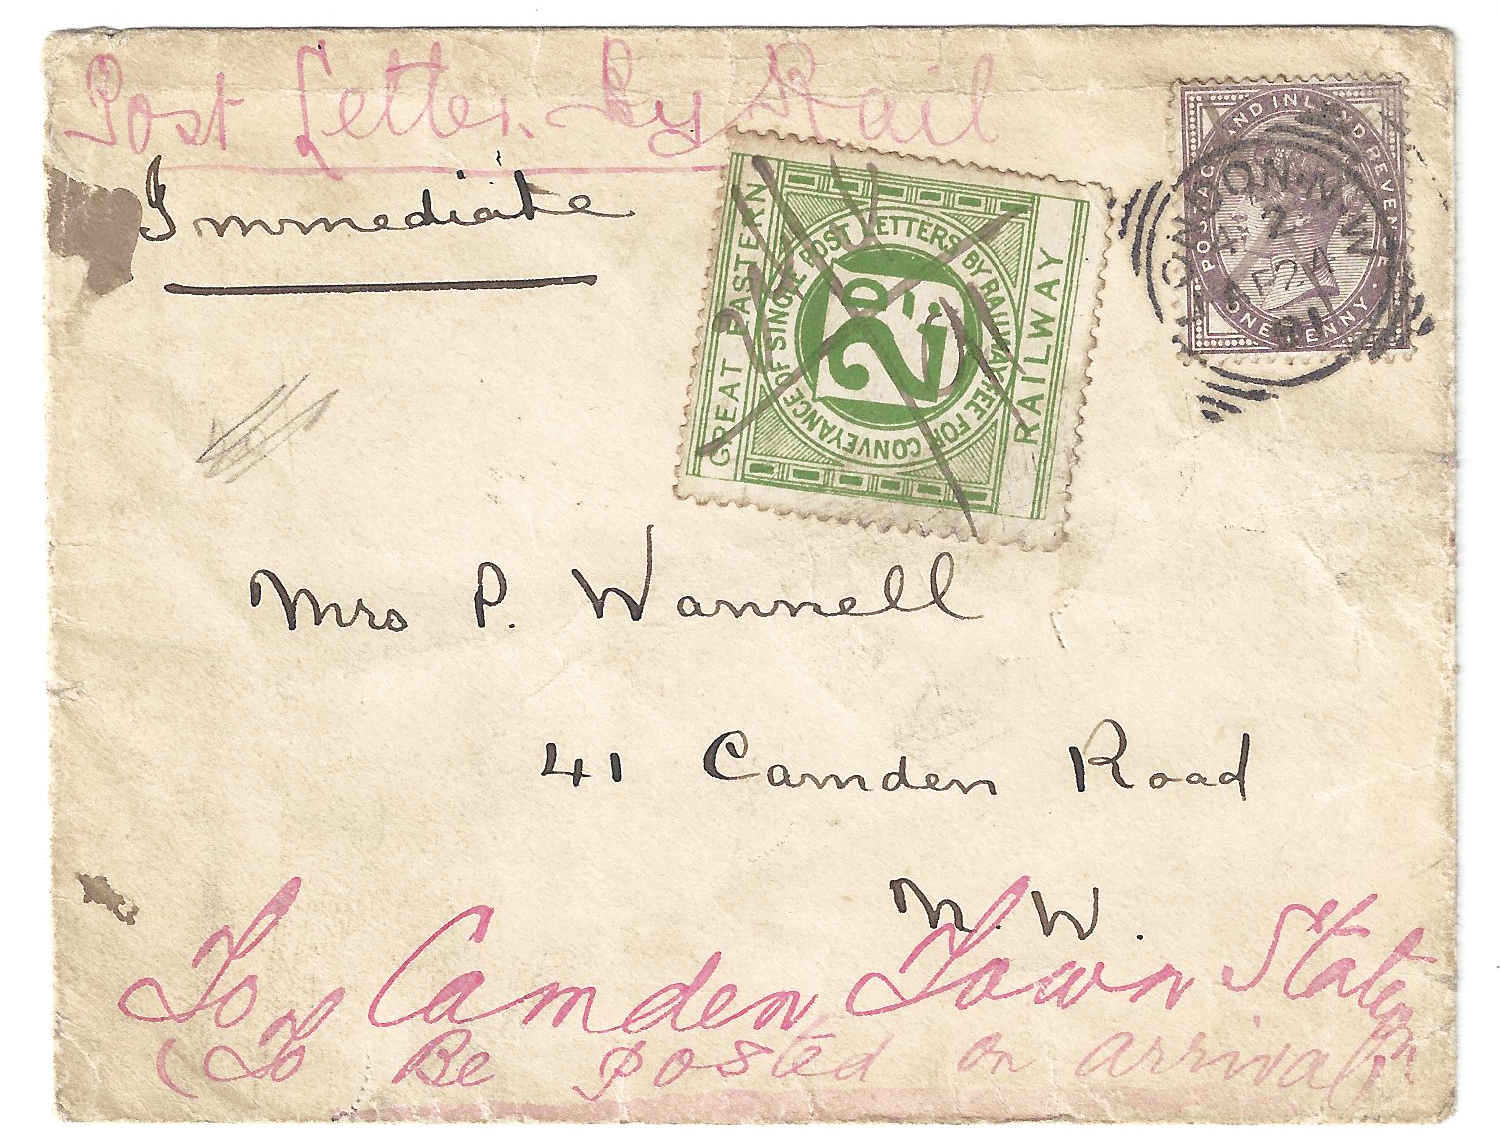 Post Letter By Rail
Immediate
GREAT EASTERN
RAILWAY
FEE FOR CONVEYANCE OF SINGLE POST LETTERS BY RAILWAY
2D.
POSTAGE AND INLAND REVENUE
ONE PENNY
LONDON·N.W
2
91
Mrs P. Wannell
41 Camden Road
N.W.
To Camden Town Station
(To Be posted on arrival)